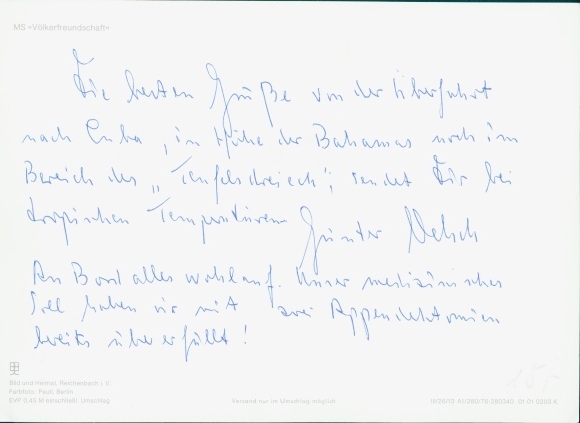 MS »Völkerfreundschaft«
Die besten Grüße von der Überfahrt
nach Cuba, in Höhe der Bahamas noch im
Bereich des „Teufelsdreieck“, sendet Dir bei
tropischen Temperaturen Günter
An Bord alles wohlauf. Unser medizinisches
Soll haben wir mit zwei Appendektomien
bereits übererfüllt!
Bild und Heimat, Reichenbach i. V.
Farbbild: Berlin
EVP 0,45 M einschließl. Umschlag
Versand nur im Umschlag möglich